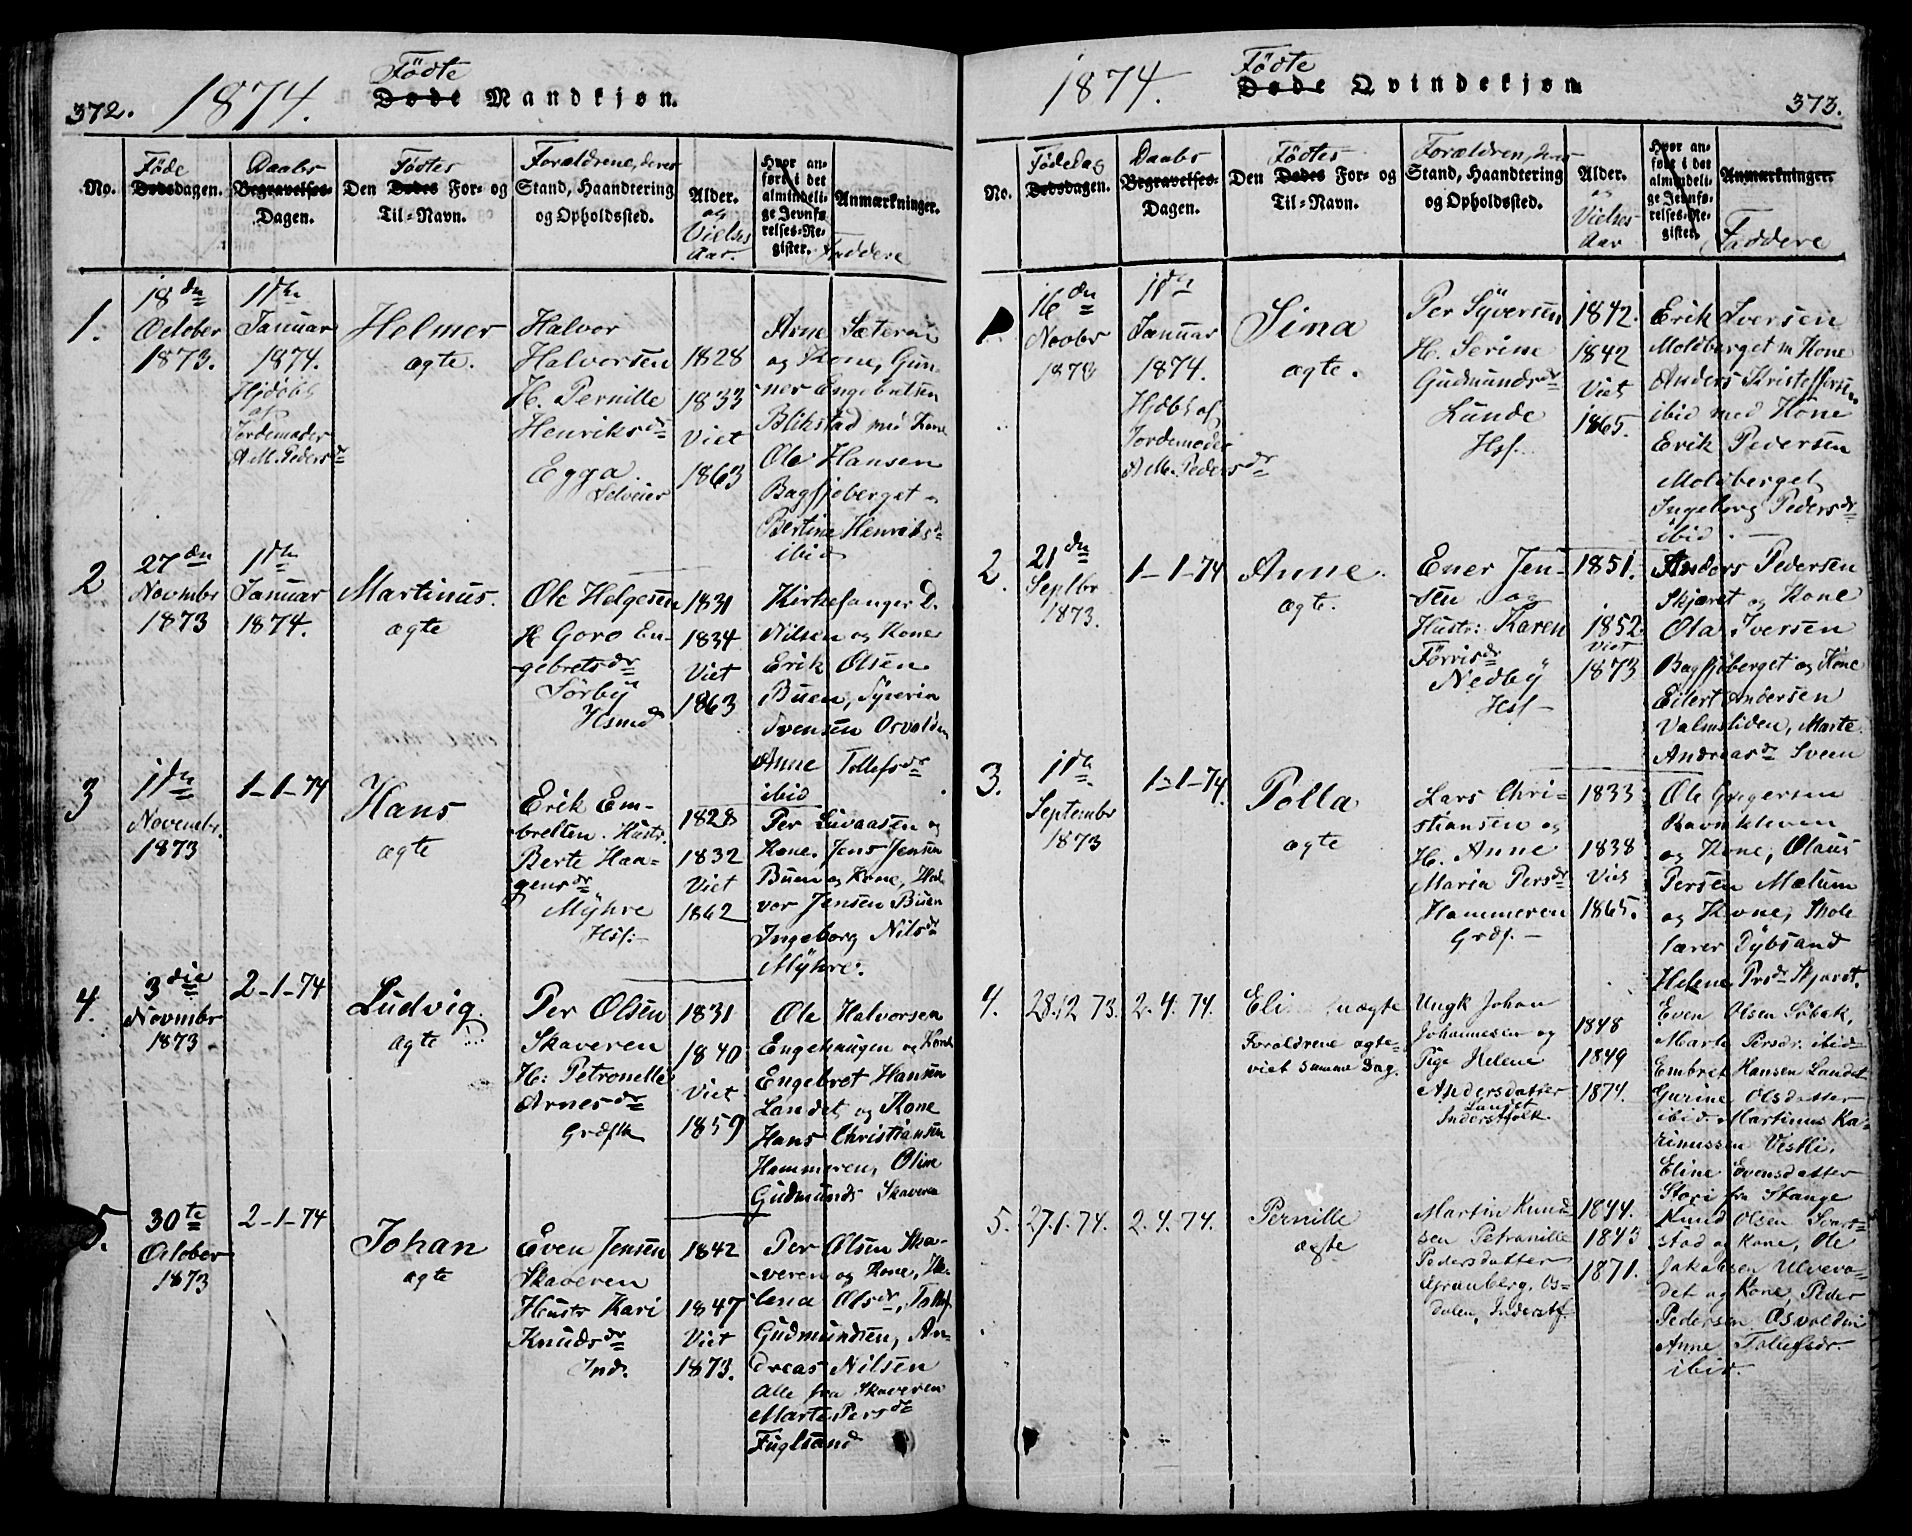 372. 1874. Födte
Døde Mandkjøn.
No.
Föde
Dødsdagen.
Daabs
Begravelses-
Dagen.
Födtes
Den Dødes For- og
Til-Navn.
Forældrene, deres
Stand, Haandtering
og Opholdssted.
Alder.
og
Vielses
Aar.
Hvor an-
ført i det
almindeli-
ge Jevnfø-
relses-Re-
gister.
Anmærkninger.
Faddere
1.
18 dn
October
1873.
1ste
Januar
1874.
Hjdöbt
af
Jordemoder
A.M. Peders dr
Helmer
ægte.
Halvor
Halvorsen
H. Pernille
Henriks dr
Egga
Selveier
1828
1833
Viet
1863
Arne Sæteren
og Kone, Gun-
ner Engebretsen
Blikstad med Kone
Ole Hansen
Bagfjøberget
Bertine Henriks dr
ibid
2
27 dn
Novmbr
1873
1ste
Januar
1874.
Martinus.
ægte
Ole Helgesen
H Goro En-
gebrets dr
Sörby
Hsmd
1831
1834
Viet
1863
Kirkesanger D.
Nilsen og Kone
Erik Olsen
Buen, Syverin
Svensen Osvolden
Anne Tollefs dr
ibid
3
1ste
Novembr.
1873
1-1-74
Hans
ægte
Erik Em-
bretsen. Hustr.
Berte Haa-
gens dr
Myhre
Hsf.
1828
1832
Viet
1862
Per Livaasen og
Kone. Jens Jensen
Buen og Kone, Hal-
vor Jensen Buen
Ingeborg Nils dr
Myhre.
4.
3 die
Novmbr
1873
2-1-74
Ludvig.
ægte
Per Olsen
Skaveren
H: Petronelle
Arnes dr
Grdflk
1831
1840
Viet
1859
Ole Halvorsen
Engehaugen og Kone
Engebret Hansen
Landet og Kone
Hans Christiansen
Hammeren, Oline
Gudmunds Skaveren
5.
30te
October
1873
2-1-74
Johan
ægte
Even Jensen
Skaveren
Hustr Kari
Knuds dr
Ind.
1842
1847
Viet
1873.
Per Olsen Ska-
veren og Kone, He-
lena Ols dr, Tollef
Gudmundsen, An-
dreas Nilsen
Alle fra Skaveren
Marte Pers dr
Fuglsand
1874. Födte
Døde Qvindekjøn
373.
No.
Födedag
Dødsdagen.
Daabs
Begravelses-
Dagen.
Födtes
Den Dødes For- og
Til-Navn.
Forældren, deres
Stand, Haandtering
og Opholdssted.
Alder.
og
Vielses
Aar
Hvor an-
ført i det
almindeli-
ge Jevnfø-
relses-Re-
gister.
Anmærkninger.
Faddere
1.
16 dn
Novbr
1873
1ste
Januar
1874.
Hjdbt af
Jordemoder
A M. Peders dr
Sina
ægte.
Per Syversen
H. Serine
Gudmunds dr
Lunde
Hsf.
1842.
1842
Viet
1865.
Erik Iversen
Moldberget m Kone
Anders Kristoffersen
ibid med Kone
Erik Pedersen
Moldberget,
Ingeborg Peders dr
ibid.
2.
21 dn
Septbr
1873.
1-1-74
Anne.
ægte.
Ener Jen-
sen og
Hustr: Karen
Förris dr
Nedby
Hsf
1851.
1852
Viet
1873
Anders Pedersen
Skjæret og Kone
Ola Iversen
Bagfjøberget og Kone
Eilert Andersen
Valmstiden, Marte
Andreas dr Sveen
3.
1ste
Septembr
1873
1-1-74.
Polla
ægte
Lars Chri-
stiansen og
H. Anne
Maria Pers dr
Hammeren
Grdf.
1833
1838
Viet
1865.
Ole Gregersen
Ravnkleven
og Kone, Olaus
Persen Mælum
og Kone, Skole
lærer Dybsand
Helene Prs dr Skjæret.
4.
28.12 73.
2. 4. 74.
Eli uægte
Forældrene ægte-
viet samme Dag.
Ungk Johan
Johannesen og
Pige Helene
Andersdatter
Landet
Inderstfolk
1848
1849
1874.
Even Olsen Söbak,
Marte Persdr. ibid
Embret Hansen Landet
Gurine Olsdatter
ibid. Martinus Ka-
rinussen Veslli.
Eline Evensdatter
Stori fra Stange
5.
27.1. 74.
2. 4. 74.
Pernille
ægte
Martin Knud-
sen Petronille
Pedersdatter
Granberg, Os-
dalen, Inderstf.
1844.
1843
1871.
Knud Olsen Svart-
stad og Kone, Ole
Jakobsen Ulvevo-
det og Kone, Peder
Pedersen Osvolden
Anne Tollefsdr.
ibid.